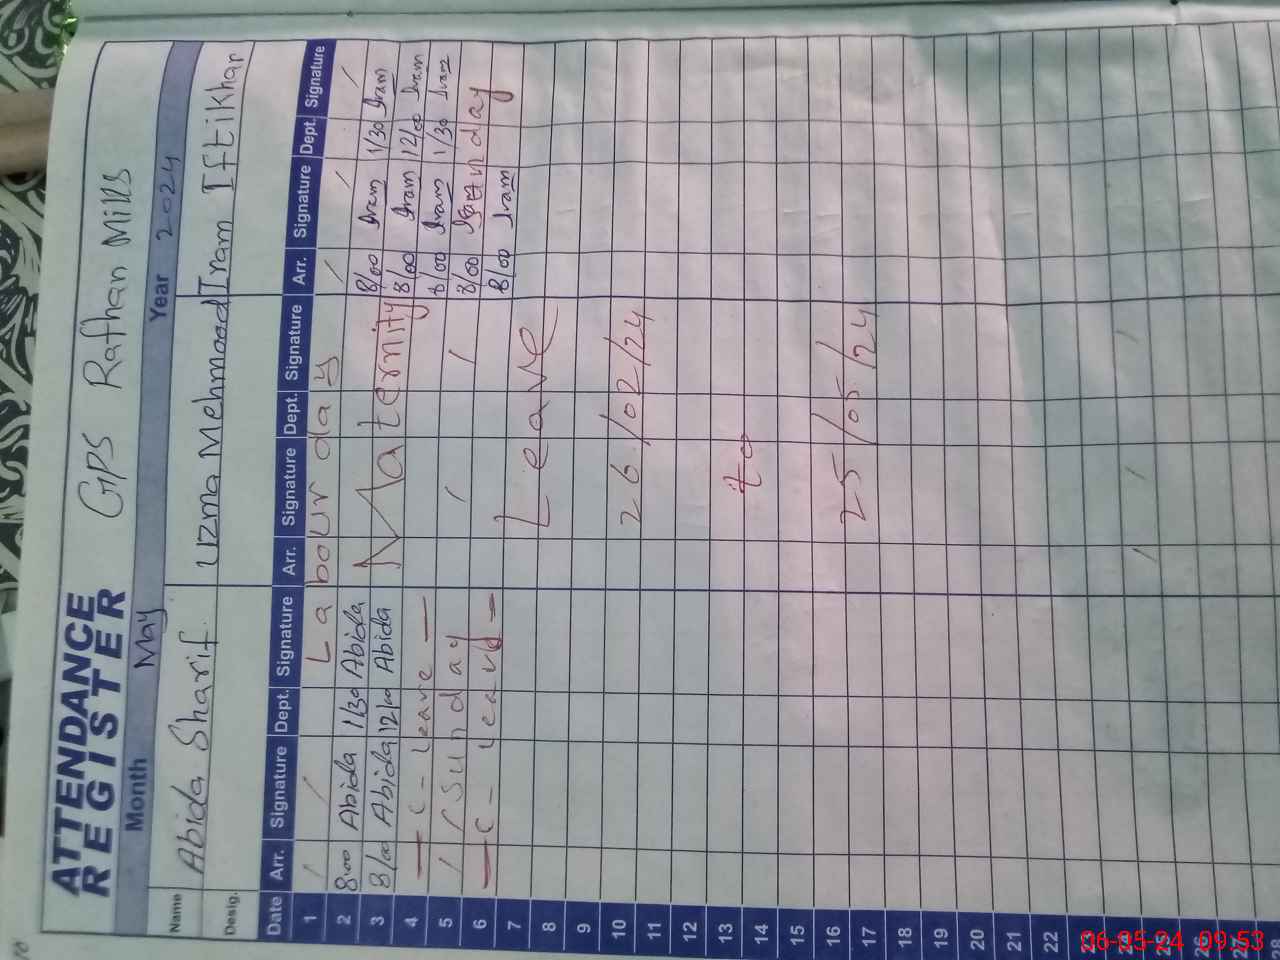 ATTENDANCE
REGISTER
GPS Rafhan Mills
Month May Year 2024
Name Abida Sharif Uzma Mehmood Iram Iftikhar
Desig.
Date Arr. Signature Dept. Signature Arr. Signature Dept. Signature Arr. Signature Dept. Signature
1 Labour day
2 8:00 Abida 1/30 Abida 8/00 Iram 1/30 Iram
3 8/00 Abida 12/00 Abida Maternity 8/00 Iram 12/00 Iram
4 — C - Leave — 8/00 Iram 1/30 Iram
5 Sunday 8/00 Sunday
6 — C - Leave — 8/00 Iram
7 Leave
8
9
10 26/02/24
11
12
13 to
14
15
16 25/05/24
17
18
19
20
21
22
24
25
26
27
28
06-05-24 09:53